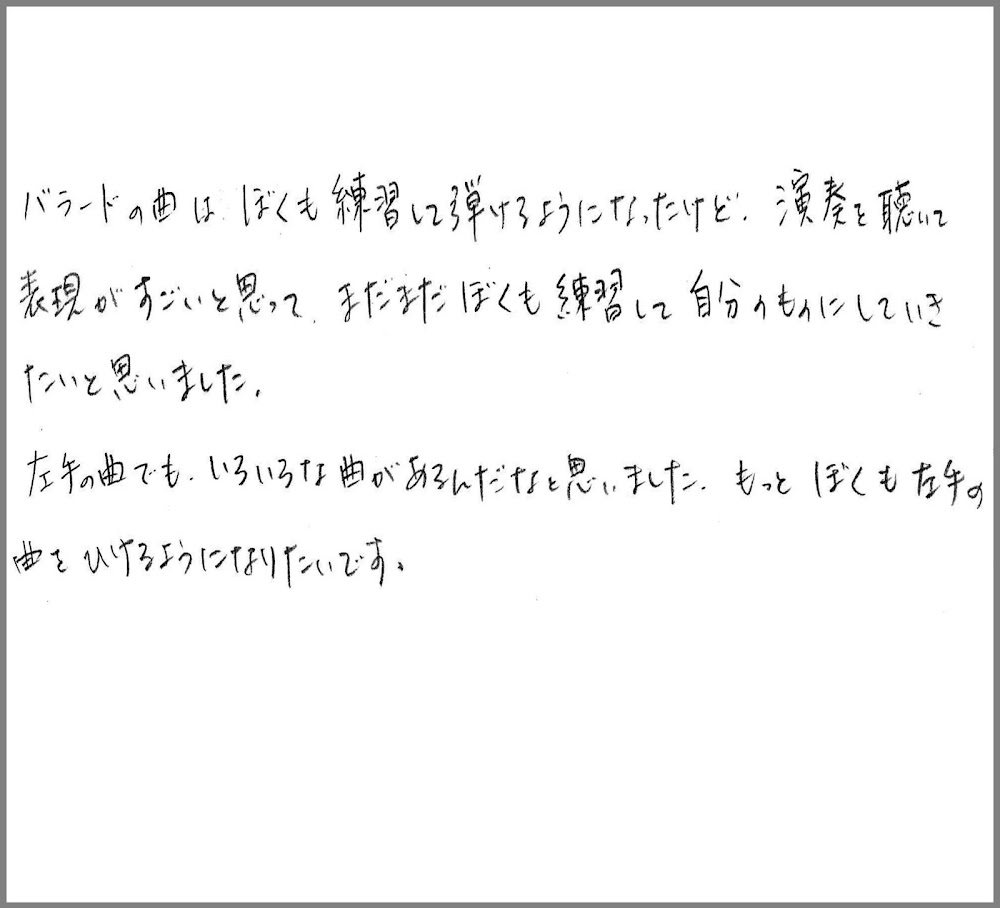 バラードの曲は、ぼくも練習して弾けるようになったけど、演奏を聴いて
表現がすごいと思って、まだまだぼくも練習して自分のものにしていき
たいと思いました。
左手の曲でも、いろいろな曲があるんだなと思いました。もっとぼくも左手の
曲をひけるようになりたいです。